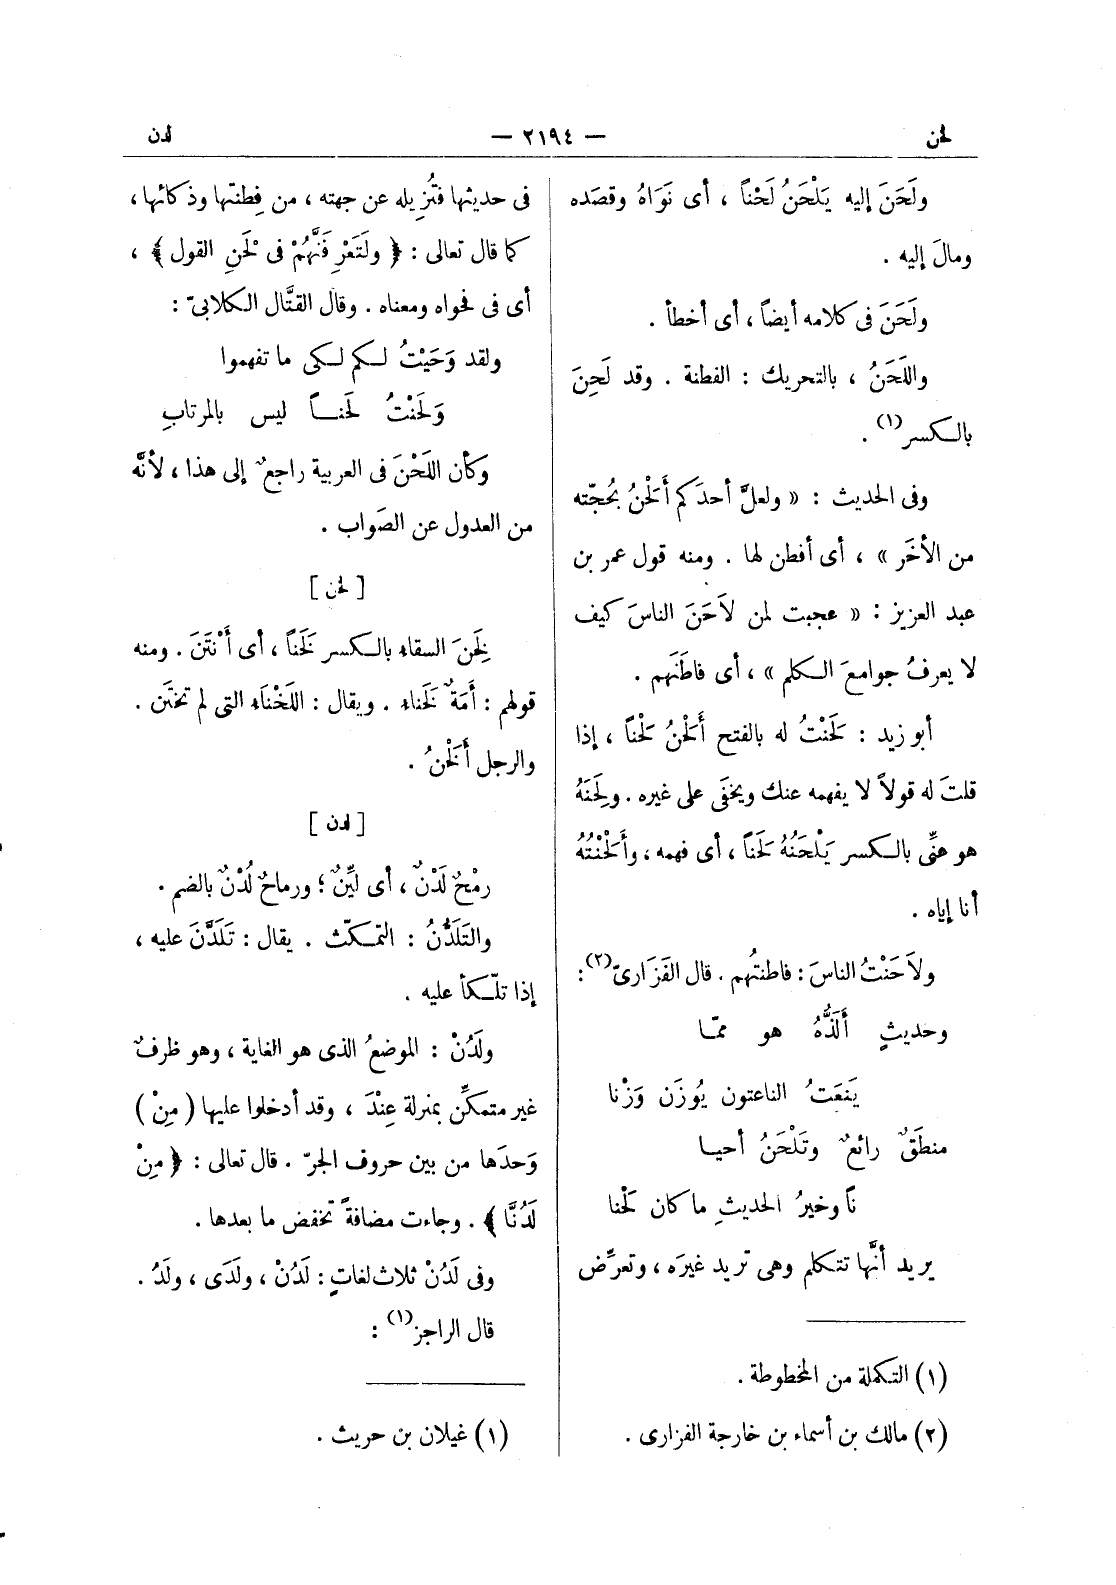 لحن — ٢١٩٤ — لدن
ولَحَنَ إليه يَلْحَنُ لَحْناً ، أى نَوَاهُ وقصَده
ومالَ إليه .
ولَحَنَ فى كلامه أيضاً ، أى أخطأ .
واللَحَنُ ، بالتحريك : الفطنة . وقد لَحِنَ
بالكسر (١) .
وفى الحديث : « ولعلَّ أحدَكم أَلْحَنُ بحُجّته
من الأخَر » ، أى أفطن لها . ومنه قول عمر بن
عبد العزيز : « عجبت لمن لاَحَنَ الناسَ كيف
لا يعرفُ جوامعَ الكلم » ، أى فاطَنَهم .
أبو زيد : لَحَنْتُ له بالفتح أَلْحَنُ لَحْناً ، إذا
قلتَ له قولاً لا يفهمه عنك ويخفَى على غيره . ولَحِنَهُ
هو عنِّى بالكسر يَلْحَنُهُ لَحَناً ، أى فهمه ، وأَلْحَنْتُهُ
أنا إياه .
ولاَحَنْتُ الناسَ : فاطنتُهم . قال الفَزَارىّ (٢) :
وحديثٍ أَلَذُّهُ هو ممّا
يَنعَتُ الناعتون يُوزَن وَزْنا
منطَقٌ رائعٌ وتَلْحَنُ أحيا
ناً وخيرُ الحديثِ ما كان لَحْنا
يريد أنَّها تتكلم وهى تريد غيرَه ، وتعرِّض
(١) التكملة من المخطوطة .
(٢) مالك بن أسماء بن خارجة الفزارى .
فى حديثها فتُزيله عن جهته ، من فِطنتها وذكائها ،
كما قال تعالى : ﴿ ولتَعْرِفَنَّهُمْ فى لَحْنِ القول ﴾ ،
أى فى فحواه ومعناه . وقال القتَّال الكلابىّ :
ولقد وَحَيْتُ لكم لكى ما تفهموا
وَلَحَنْتُ لَحَناً ليس بالمرتابِ
وكأن اللَحْنَ فى العربية راجعٌ إلى هذا ، لأنَّه
من العدول عن الصَواب .
[ لخن ]
لَخِنَ السقاء بالكسر لَخَناً ، أى أَنْتَنَ . ومنه
قولهم : أَمَةٌ لَخناء . ويقال : اللَخْنَاء التى لم تختَن .
والرجل أَلْخَنُ .
[ لدن ]
رمْحٌ لَدْنٌ ، أى ليِّنٌ ؛ ورماحٌ لُدْنٌ بالضم .
والتَلَدُّنُ : التمكّث . يقال : تَلَدَّنَ عليه ،
إذا تلكّأ عليه .
ولَدُنْ : الموضعُ الذى هو الغاية ، وهو ظرفٌ
غير متمكّنٍ بمنزلة عِنْدَ ، وقد أدخلوا عليها ( مِنْ )
وَحدَها من بين حروف الجرّ . قال تعالى : ﴿ مِنْ
لَدُنَّا ﴾ . وجاءت مضافةً تخفض ما بعدها .
وفى لَدُنْ ثلاث لغاتٍ : لَدُنْ ، ولَدَى ، ولَدُ .
قال الراجز (١) :
(١) غيلان بن حريث .